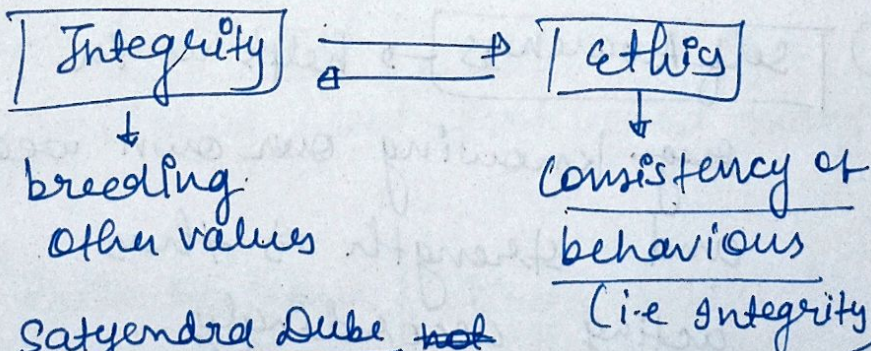 Integrity ⇄ Ethics
breeding
other values
Consistency of
behaviours
(i.e Integrity
Satyendra Dube not